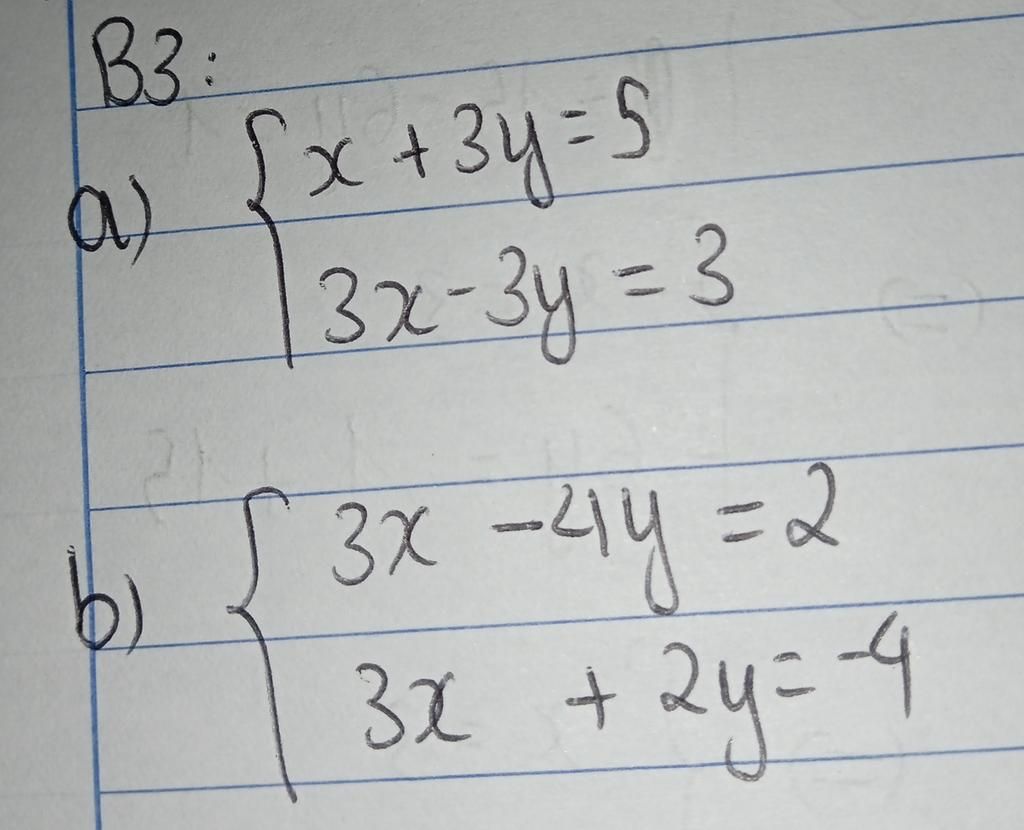 B3:
a) { x + 3y = 5
3x - 3y = 3
b) { 3x - 4y = 2
3x + 2y = -4